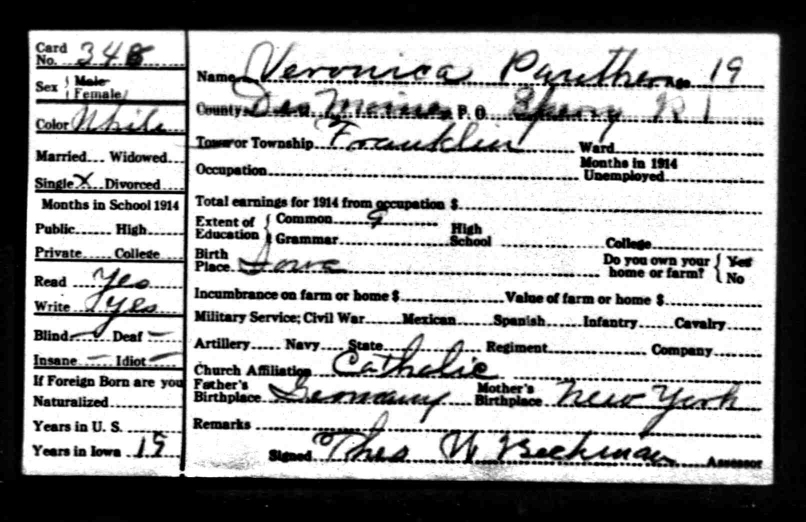 Card No. 348
Sex Male Female
Color White
Married Widowed
Single X Divorced
Months in School 1914
Public High
Private College
Read Yes
Write yes
Blind — Deaf —
Insane — Idiot —
If Foreign Born are you
Naturalized
Years in U. S.
Years in Iowa 19
Name Veronica Panther Age 19
County Des Moines P. O. Sperry R 1
Town or Township Franklin Ward
Occupation Months in 1914 Unemployed
Total earnings for 1914 from occupation $
Extent of Education { Common 9 High School College
Grammar
Birth Place Iowa Do you own your home or farm? { Yes No
Incumbrance on farm or home $ Value of farm or home $
Military Service; Civil War Mexican Spanish Infantry Cavalry
Artillery Navy State Regiment Company
Church Affiliation Catholic
Father's Birthplace Germany Mother's Birthplace New York
Remarks
Signed Thes W Beckman Assessor